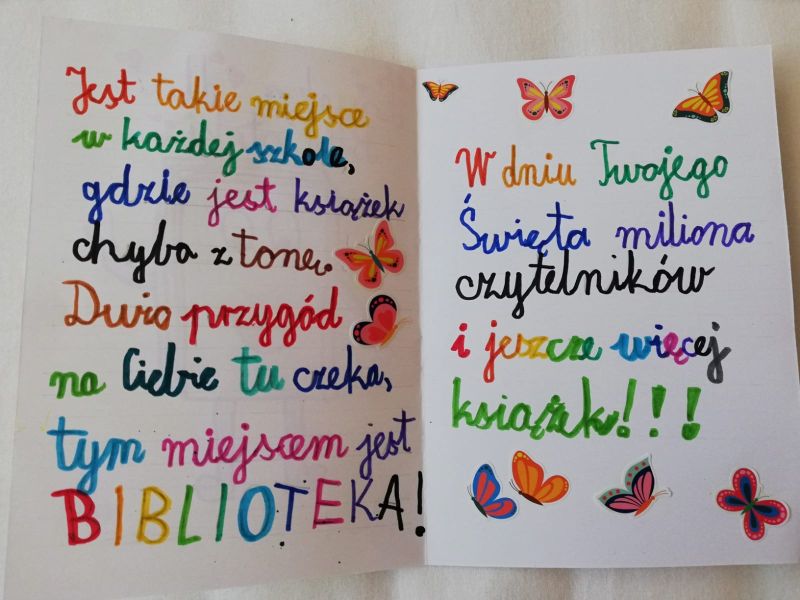 Jest takie miejsce
w każdej szkole,
gdzie jest książek
chyba z tonę.
Dużo przygód
na Ciebie tu czeka,
tym miejscem jest
BIBLIOTEKA!
W dniu Twojego
Święta miliona
czytelników
i jeszcze więcej
książek!!!